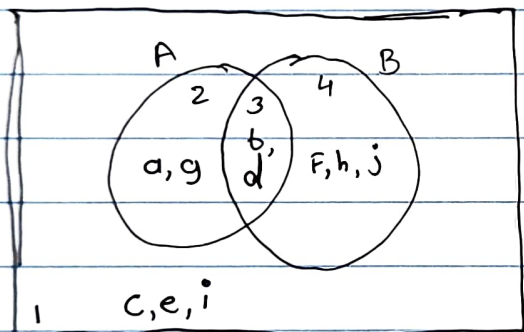 A B
2 3 4
a, g b, d F, h, j
1 c, e, i